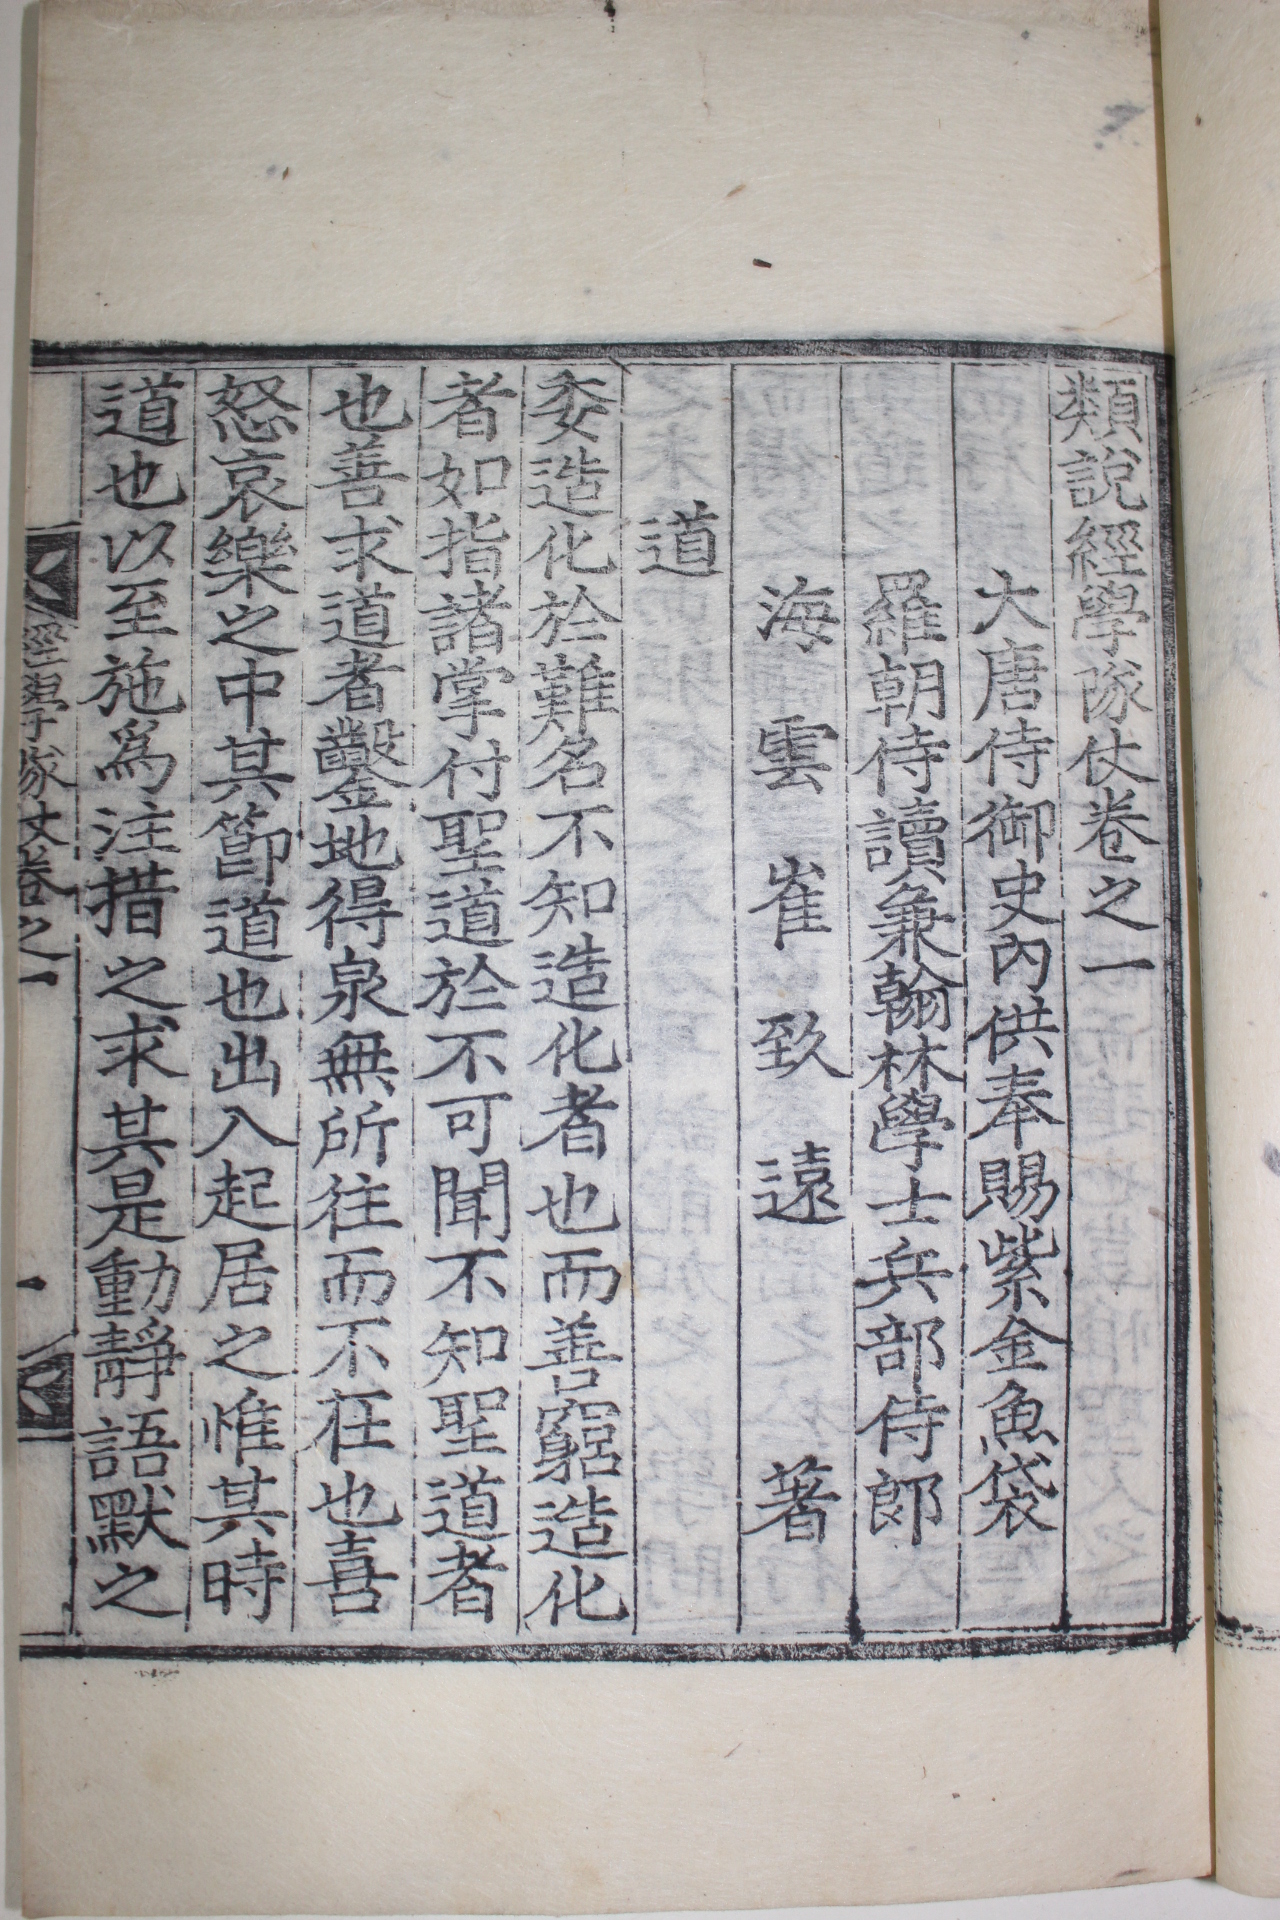 類說經學隊仗卷之一
大唐侍御史內供奉賜紫金魚袋
羅朝侍讀兼翰林學士兵部侍郎
海雲崔致遠著
道
委造化於難名不知造化者也而善窮造化
者如指諸掌付聖道於不可聞不知聖道者
也善求道者鑿地得泉無所往而不在也喜
怒哀樂之中其節道也出入起居之惟其時
道也以至施爲注措之求其是動靜語默之
經學隊仗卷之一